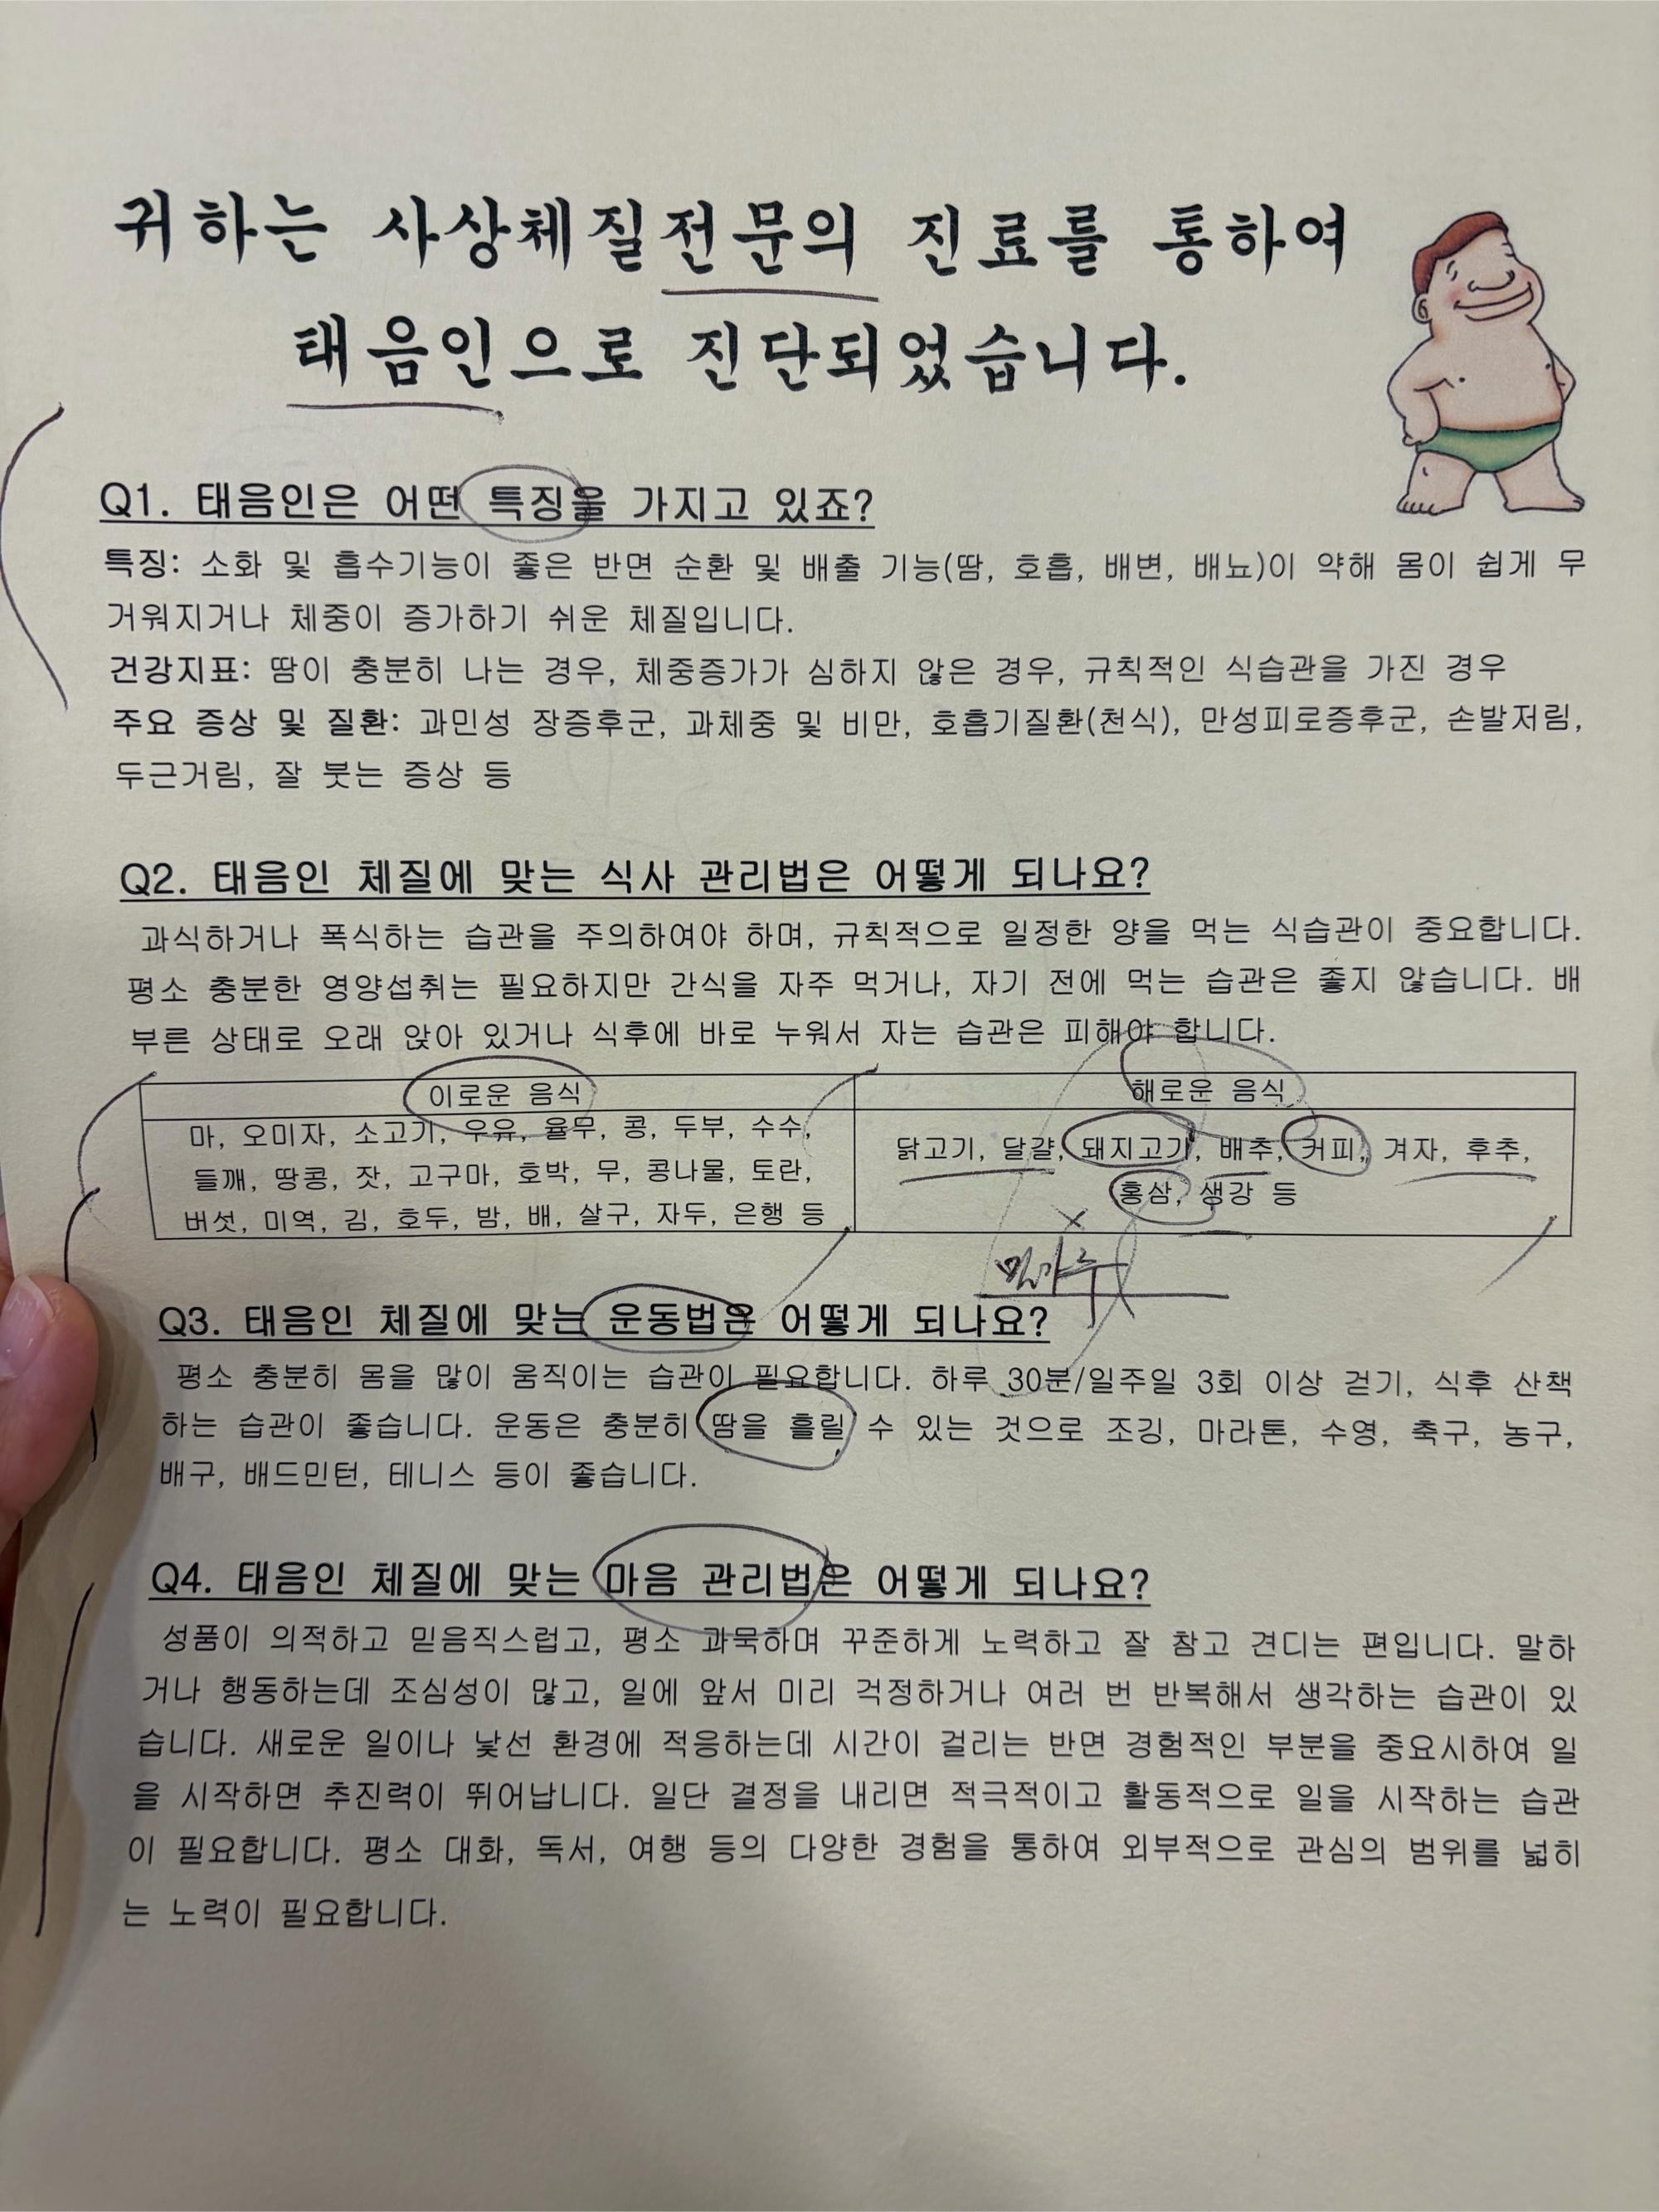 귀하는 사상체질전문의 진료를 통하여
태음인으로 진단되었습니다.
Q1. 태음인은 어떤 특징을 가지고 있죠?
특징: 소화 및 흡수기능이 좋은 반면 순환 및 배출 기능(땀, 호흡, 배변, 배뇨)이 약해 몸이 쉽게 무
거워지거나 체중이 증가하기 쉬운 체질입니다.
건강지표: 땀이 충분히 나는 경우, 체중증가가 심하지 않은 경우, 규칙적인 식습관을 가진 경우
주요 증상 및 질환: 과민성 장증후군, 과체중 및 비만, 호흡기질환(천식), 만성피로증후군, 손발저림,
두근거림, 잘 붓는 증상 등
Q2. 태음인 체질에 맞는 식사 관리법은 어떻게 되나요?
과식하거나 폭식하는 습관을 주의하여야 하며, 규칙적으로 일정한 양을 먹는 식습관이 중요합니다.
평소 충분한 영양섭취는 필요하지만 간식을 자주 먹거나, 자기 전에 먹는 습관은 좋지 않습니다. 배
부른 상태로 오래 앉아 있거나 식후에 바로 누워서 자는 습관은 피해야 합니다.
이로운 음식
마, 오미자, 소고기, 우유, 율무, 콩, 두부, 수수,
들깨, 땅콩, 잣, 고구마, 호박, 무, 콩나물, 토란,
버섯, 미역, 김, 호두, 밤, 배, 살구, 자두, 은행 등
해로운 음식
닭고기, 달걀, 돼지고기, 배추, 커피, 겨자, 후추,
홍삼, 생강 등
밀가루
Q3. 태음인 체질에 맞는 운동법은 어떻게 되나요?
평소 충분히 몸을 많이 움직이는 습관이 필요합니다. 하루 30분/일주일 3회 이상 걷기, 식후 산책
하는 습관이 좋습니다. 운동은 충분히 땀을 흘릴 수 있는 것으로 조깅, 마라톤, 수영, 축구, 농구,
배구, 배드민턴, 테니스 등이 좋습니다.
Q4. 태음인 체질에 맞는 마음 관리법은 어떻게 되나요?
성품이 의적하고 믿음직스럽고, 평소 과묵하며 꾸준하게 노력하고 잘 참고 견디는 편입니다. 말하
거나 행동하는데 조심성이 많고, 일에 앞서 미리 걱정하거나 여러 번 반복해서 생각하는 습관이 있
습니다. 새로운 일이나 낯선 환경에 적응하는데 시간이 걸리는 반면 경험적인 부분을 중요시하여 일
을 시작하면 추진력이 뛰어납니다. 일단 결정을 내리면 적극적이고 활동적으로 일을 시작하는 습관
이 필요합니다. 평소 대화, 독서, 여행 등의 다양한 경험을 통하여 외부적으로 관심의 범위를 넓히
는 노력이 필요합니다.